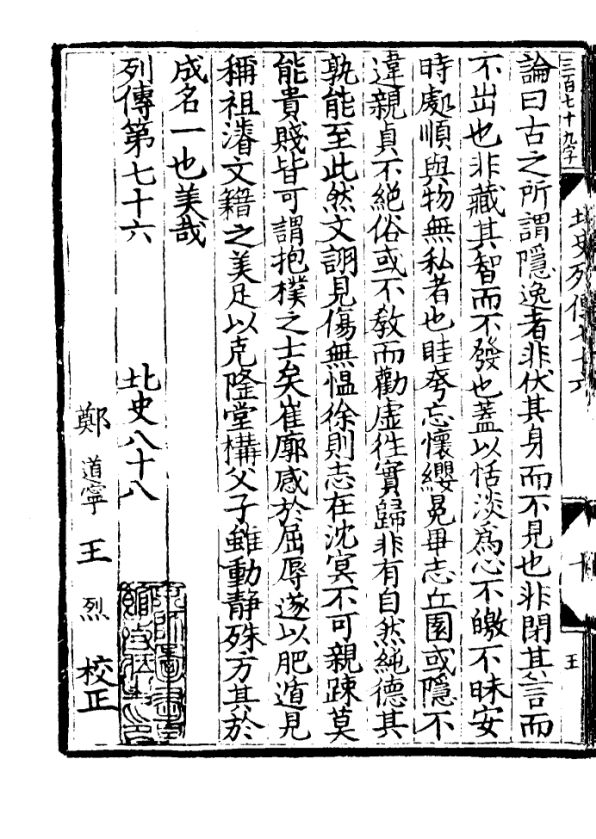 三百七十九字
北史列傳七十六
十
王
論曰古之所謂隱逸者非伏其身而不見也非閉其言而
不出也非藏其智而不發也蓋以恬淡爲心不皦不昧安
時處順與物無私者也眭夸忘懷纓冕畢志丘園或隱不
違親貞不絕俗或不教而勸虛徃實歸非有自然純德其
孰能至此然文詡見傷無慍徐則志在沈冥不可親踈莫
能貴賤皆可謂抱樸之士矣崔廓感於屈辱遂以肥遁見
稱祖濬文籍之美足以克隆堂構父子雖動靜殊方其於
成名一也美哉
列傳第七十六　北史八十八
鄭道寧　王烈　校正